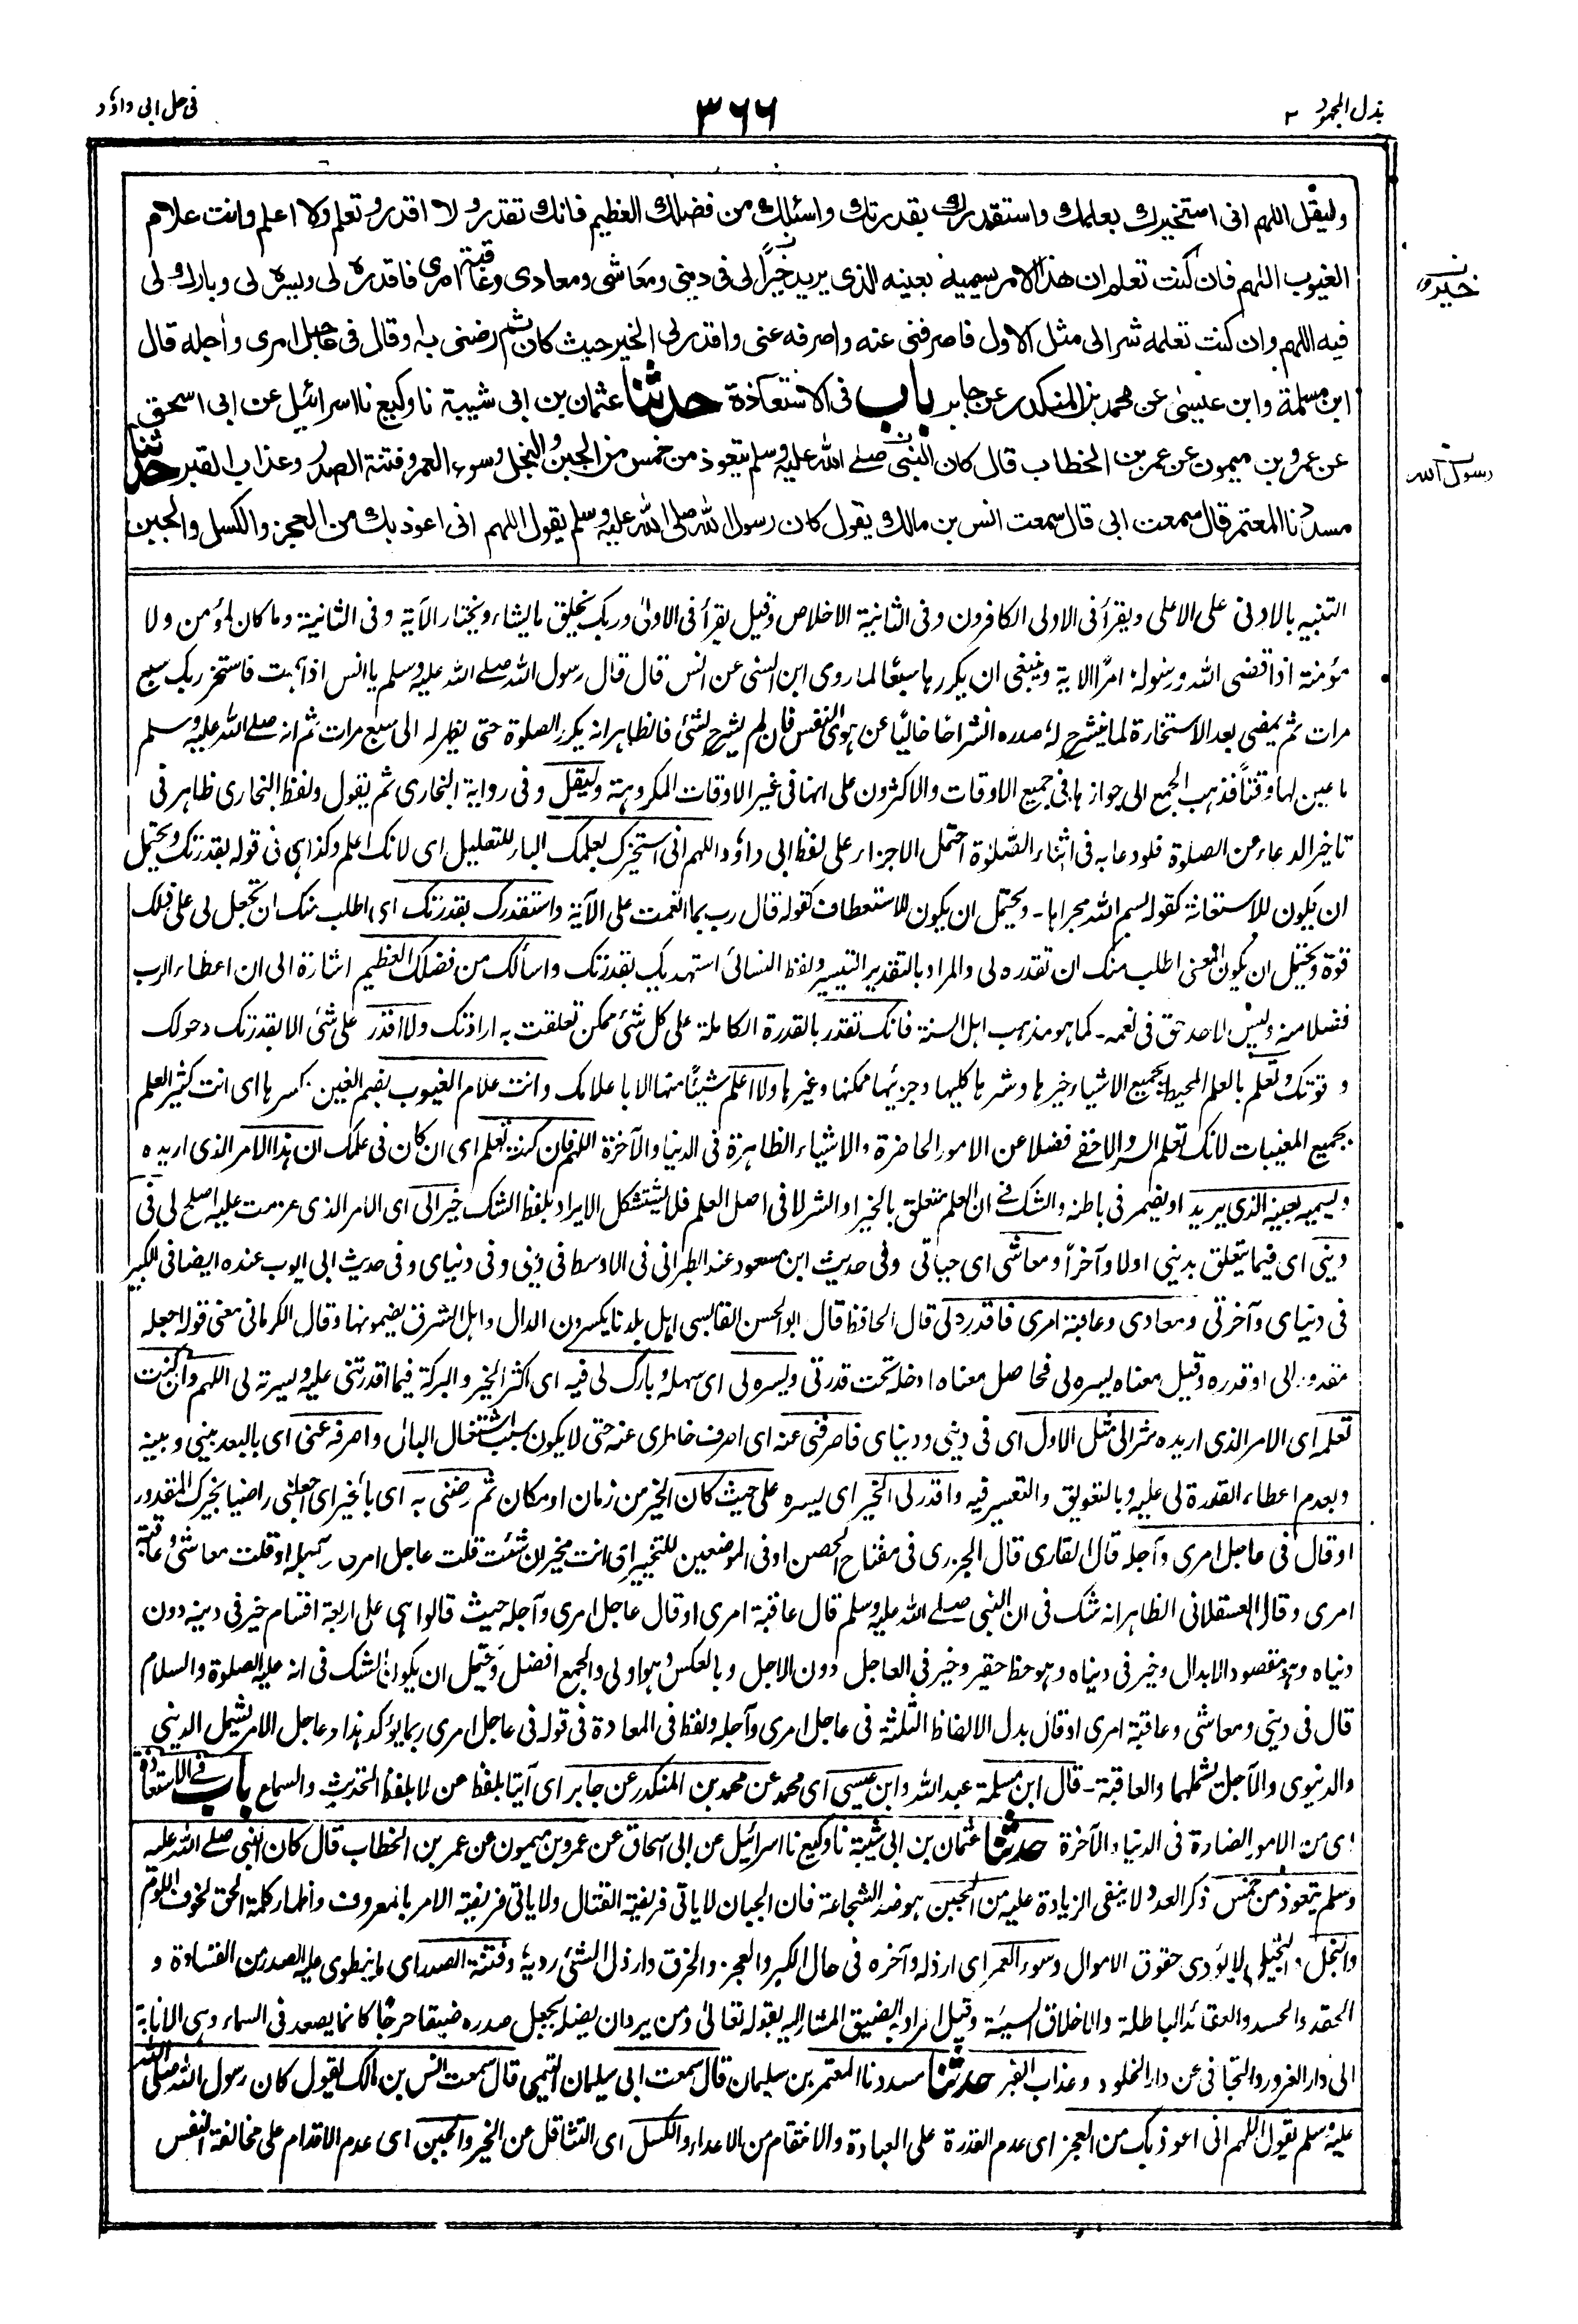 بذل المجهود ٢
٣٦٦
فى حل ابى داؤد
وليقل اللهم انى استخيرك بعلمك واستقدرك بقدرتك واسئلك من فضلك العظيم فانك تقدر ولا اقدر وتعلم ولا اعلم وانت علام
الغيوب اللهم فان كنت تعلم ان هذا الامر يسميه بعينه الذى يريد خيرا لى فى دينى ومعاشى ومعادى وعاقبة امرى فاقدره لى ويسره لى وبارك لى
فيه اللهم وان كنت تعلمه شرا لى مثل الاول فاصرفنى عنه واصرفه عنى واقدر لى الخير حيث كان ثم رضنى به او قال فى عاجل امرى واجله قال
ابن مسلمة وابن عيسى عن محمد بن المنكدر عن جابر باب فى الاستعاذة حدثنا عثمان بن ابى شيبة نا وكيع نا اسرائيل عن ابى اسحق
عن عمرو بن ميمون عن عمر بن الخطاب قال كان النبى صلے الله عليه وسلم يتعوذ من خمس من الجبن والبخل وسوء العمر وفتنة الصدر وعذاب القبر حدثنا
مسدد نا المعتمر قال سمعت ابى قال سمعت انس بن مالك يقول كان رسول الله صلى الله عليه وسلم يقول اللهم انى اعوذ بك من العجز والكسل والجبن
رسول الله
التنبيه بالادنى على الاعلى ويقرأ فى الاولى الكافرون وفى الثانية الاخلاص وقيل يقرأ فى الاولى وربك يخلق ما يشاء ويختار الآية وفى الثانية وما كان لمؤمن ولا
مؤمنة اذا قضى الله ورسوله امرًا الاية وينبغى ان يكررها سبعًا لما روى ابن السنى عن انس قال قال رسول الله صلے الله عليه وسلم يا انس اذا هممت فاستخر ربك سبع
مرات ثم يمضى بعد الاستخارة لما ينشرح له صدره انشراحًا خاليًا عن هوى النفس فان لم ينشرح لشئ فالظاهر انه يكرر الصلوة حتى يظهر له الى سبع مرات ثم انه صلے الله عليه وسلم
ما عين لها وقتاً فذهب الجمع الى جوازها فى جميع الاوقات والاكثرون على انها فى غير الاوقات المكروهة وليقل وفى رواية البخارى ثم يقول ولفظ البخارى ظاهر فى
تاخير الدعاء عن الصلوة فلو دعا به فى اثناء الصلوة احتمل الاجزاء على لفظ ابى داؤد اللهم انى استخيرك بعلمك الباء للتعليل اى لانك اعلم وكذا هى فى قوله بقدرتك ويحتمل
ان يكون للاستعانة كقوله بسم الله مجراها - ويحتمل ان يكون للاستعطاف كقوله قال رب بما انعمت على الآية واستقدرك بقدرتك اى اطلب منك ان تجعل لى على ذلك
قوة ويحتمل ان يكون المعنى اطلب منك ان تقدره لى والمراد بالتقدير التيسير ولفظ النسائى استهديك بقدرتك واسألك من فضلك العظيم اشارة الى ان اعطاء الرب
فضلا منه وليس لاحد حق فى نعمه - كما هو مذهب اهل السنة فانك تقدر بالقدرة الكاملة على كل شئ ممكن تعلقت به ارادتك ولا اقدر على شئ الا بقدرتك وحولك
وقوتك وتعلم بالعلم المحيط بجميع الاشياء خيرها وشرها كليها وجزئيها ممكنها وغيرها ولا اعلم شيئًا منها الا باعلامك وانت علام الغيوب بضم الغين وكسرها اى انت كثير العلم
بجميع المغيبات لانك تعلم السر والاخفے فضلا عن الامور الحاضرة والاشياء الظاهرة فى الدنيا والآخرة اللهم فان كنت تعلم اى ان كان فى علمك ان هذا الامر الذى اريده
ويسميه بعينه الذى يريد او يضمر فى باطنه والشك فے ان العلم متعلق بالخير او الشر لا فى اصل العلم فلا يستشكل الايراد بلفظ الشك خيرا لى اى الامر الذى عزمت عليه اصلح لى فى
دينى اى فيما يتعلق بدينى اولا وآخراً ومعاشى اى حياتى وفى حديث ابن مسعود عند الطبرانى فى الاوسط فى دينى وفى دنياى وفى حديث ابى ايوب عنده ايضا فى الكبير
فى دنياى وآخرتى ومعادى وعاقبة امرى فاقدره لى قال الحافظ قال ابو الحسن القابسى اهل بلدنا يكسرون الدال واهل الشرق يضمونها وقال الكرمانى معنى قوله اجعله
مقدورا لى او قدره وقيل معناه يسره لى فحاصل معناه ادخله تحت قدرتى ويسره لى اى سهله وبارك لى فيه اى اكثر الخير والبركة فيما اقدرتنى عليه ويسرته لى اللهم وان كنت
تعلمه اى الامر الذى اريده شرا لى مثل الاول اى فى دينى ودنياى فاصرفنى عنه اى اصرف خاطرى عنه حتى لا يكون سبب اشتغال البال واصرفه عنى اى بالبعد بينى وبينه
وبعدم اعطاء القدرة لى عليه وبالتعويق والتعسير فيه واقدر لى الخير اى يسره على حيث كان الخير من زمان او مكان ثم رضنى به اى بالخير اى اجعلنى راضيا بخيرك المقدور
او قال فى عاجل امرى وآجله قال القارى قال الجزرى فى مفتاح الحصن او فى الموضعين للتخيير اى انت مخير ان شئت قلت عاجل امرى وآجله او قلت معاشى وعاقبة
امرى وقال العسقلانى الظاهر انه شك فى ان النبى صلے الله عليه وسلم قال عاقبة امرى او قال عاجل امرى وآجله حيث قالوا هى على اربعة اقسام خير فى دينه دون
دنياه وهو مقصود الابدال وخير فى دنياه وهو حظ حقير وخير فى العاجل دون الاجل وبالعكس وهو اولى والجمع افضل ويحتمل ان يكون الشك فى انه عليه الصلوة والسلام
قال فى دينى ومعاشى وعاقبة امرى او قال بدل الالفاظ الثلثة فى عاجل امرى وآجله ولفظ فى المعادة فى قوله فى عاجل امرى ربما يؤكد هذا وعاجل الامر يشمل الدينى
والدنيوى والآجل يشملهما والعاقبة - قال ابن مسلمة عبد الله وابن عيسى اى محمد عن محمد بن المنكدر عن جابر اى آتيا بلفظ عن لا بلفظ التحديث والسماع باب فے الاستعاذة
اى من الامور الضارة فى الدنيا والآخرة حدثنا عثمان بن ابى شيبة نا وكيع نا اسرائيل عن ابى اسحاق عن عمرو بن ميمون عن عمر بن الخطاب قال كان النبى صلے الله عليه
وسلم يتعوذ من خمس ذكر العدد لا ينفى الزيادة عليه من الجبن هو ضد الشجاعة فان الجبان لا ياتى فريضة القتال ولا ياتى فريضة الامر بالمعروف واظهار كلمة الحق لخوف اللوم
والبخل والبخيل لا يؤدى حقوق الاموال وسوء العمر اى ارذله وآخره فى حال الكبر والعجز والخرق وارذل الشئ رديه وفتنة الصدر اى ما ينطوى عليه الصدر من القساوة و
الحقد والحسد والعقائد الباطلة والاخلاق السيئة وقيل المراد به الضيق المشار اليه بقوله تعالى ومن يرد ان يضله يجعل صدره ضيقا حرجًا كانما يصعد فى السماء وهى الانابة
الى دار الغرور والتجافى عن دار الخلود وعذاب القبر حدثنا مسدد نا المعتمر بن سليمان قال سمعت ابى سليمان التيمى قال سمعت انس بن مالك يقول كان رسول الله صلى الله
عليه وسلم يقول اللهم انى اعوذ بك من العجز اى عدم القدرة على العبادة والانتقام من الاعداء والكسل اى التثاقل عن الخير والجبن اى عدم الاقدام على مخالفة النفس